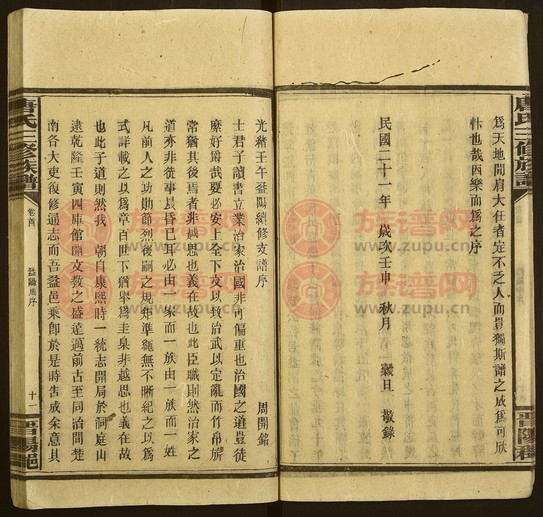 為天地間肩大任者定不乏人而豈獨斯譜之成為可欣
忭也哉因樂而為之序
民國二十一年 歲次壬申 秋月 穀旦 敬錄
唐氏三修族譜
晉陽郡
光緒壬午益陽續修支譜序
周開銘
士君子讀書立業治家治國非可偏重也治國之道豈徒
縻好爵哉要必安上全下文以敷治武以定亂而竹帛
常猶其後焉者非越思也義在故也此臣職則然治家之
道亦非徒事晨昏已耳必由一家而一族由一族而一姓
凡前人之功勛節烈後嗣之規矩準繩無不晰紀之以為
式詳載之以為章百世下猶舉為圭臬非越思也義在故
也此子道則然我 朝自康熙時一統志開局於祠庭山
逮乾隆壬寅四庫館開文教之盛遠邁前古至同治間楚
南各大吏復修通志而吾益邑乘即於是時告成余意其
唐氏三修族譜
卷首
益陽原序
十一
晉陽郡
族譜网
www.zupu.cn
族譜网
www.zupu.cn
族譜网
www.zupu.cn
族譜网
www.zupu.cn